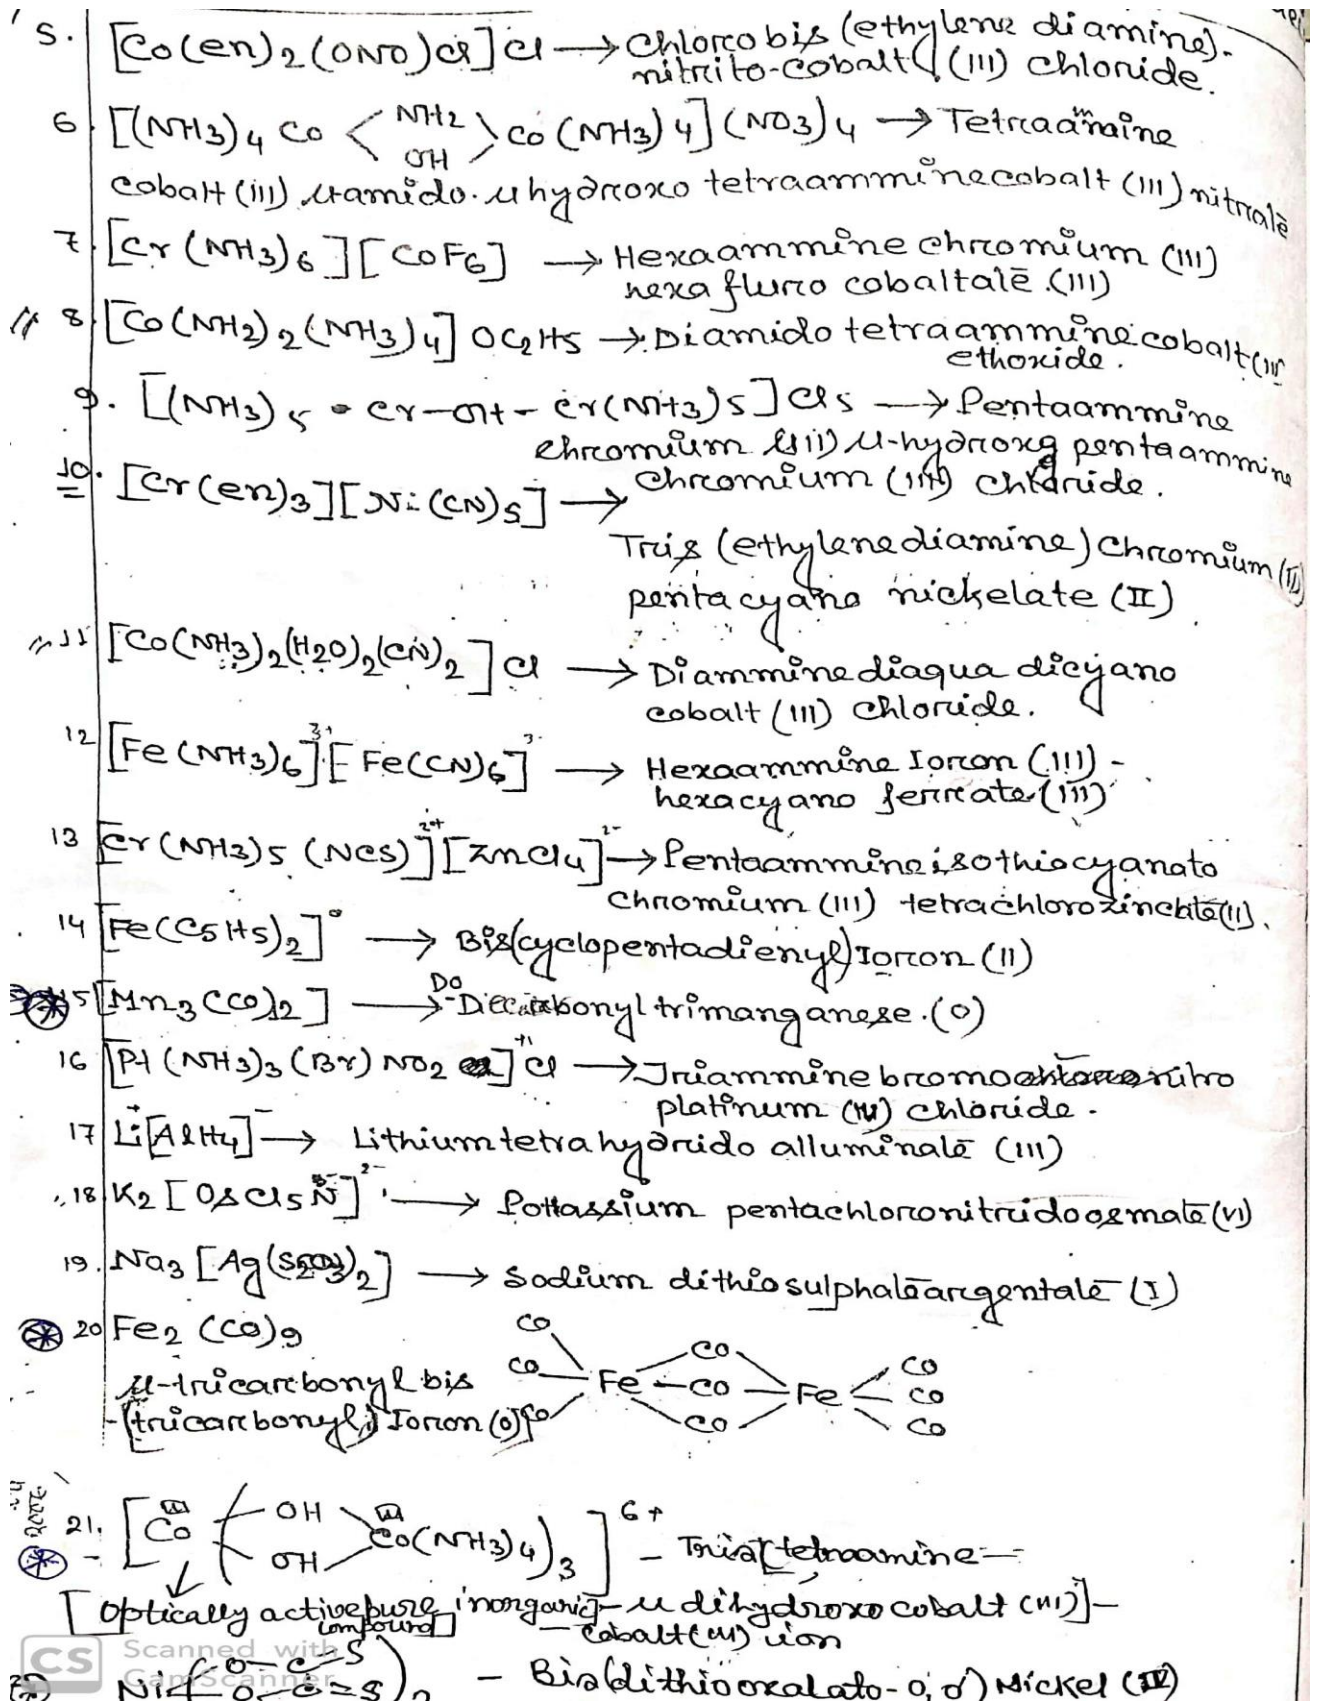 5. [Co(en)2(ONO)Cl]Cl → Chloro bis (ethylene diamine).
nitrito-cobalt (III) chloride.
6. [(NH3)4 Co < NH2 OH > Co (NH3)4] (NO3)4 → Tetraammine
cobalt (iii) μ amido. μ hydroxo tetraammine cobalt (III) nitrate
7. [Cr (NH3)6][CoF6] → Hexaammine chromium (III)
hexa fluro cobaltate (III)
8. [Co(NH2)2(NH3)4] OC2H5 → Diamido tetraammine cobalt (III
ethoxide.
9. [(NH3)5 - Cr-OH- Cr(NH3)5] Cl5 → Pentaammine
chromium (iii) μ-hydroxo pentaammine
chromium (III) chloride.
10. [Cr(en)3][Ni(CN)5] →
Tris (ethylenediamine) chromium
pentacyano nickelate (II)
11 [Co(NH3)2(H2O)2(CN)2] Cl → Diammine diaqua dicyano
cobalt (III) chloride.
12 [Fe(NH3)6]3+[Fe(CN)6]3- → Hexaammine Ioron (III) -
hexacyano ferrate (III)
13 [Cr(NH3)5 (NCS)]2+[ZnCl4]2- → Pentaammine isothiocyanato
chromium (III) tetrachlorozincate (II).
14 [Fe(C5H5)2]° → Bis(cyclopentadienyl) Ioron (II)
15 [Mn3(CO)12] → Dodecacarbonyl trimanganese.(0)
16 [Pt (NH3)3 (Br) NO2]+1 Cl → Triammine bromo nitro
platinum chloride.
17 Li+[AlH4]- → Lithium tetra hydrido alluminate (III)
18 K2 [OsCl5N]2- → Pottassium pentachloronitridoosmate (VI)
19. Na3 [Ag(S2O3)2] → Sodium dithiosulphato argentate (I)
20 Fe2 (CO)9
μ-tricarbonyl bis
-(tricarbonyl) Ioron (0)
CO CO CO Fe CO CO CO Fe CO CO CO
21. [Co III ( OH OH Co III (NH3)4)3]6+ - Tris[tetraamine-
[Optically active pure inorganic - μ dihydroxo cobalt (III)]-
compound] - cobalt (III) ion
CS Scanned with
CamScanner
Ni( O-C=S O-C=S )2 - Bis(dithiooxalato-O,O') Nickel (IV)